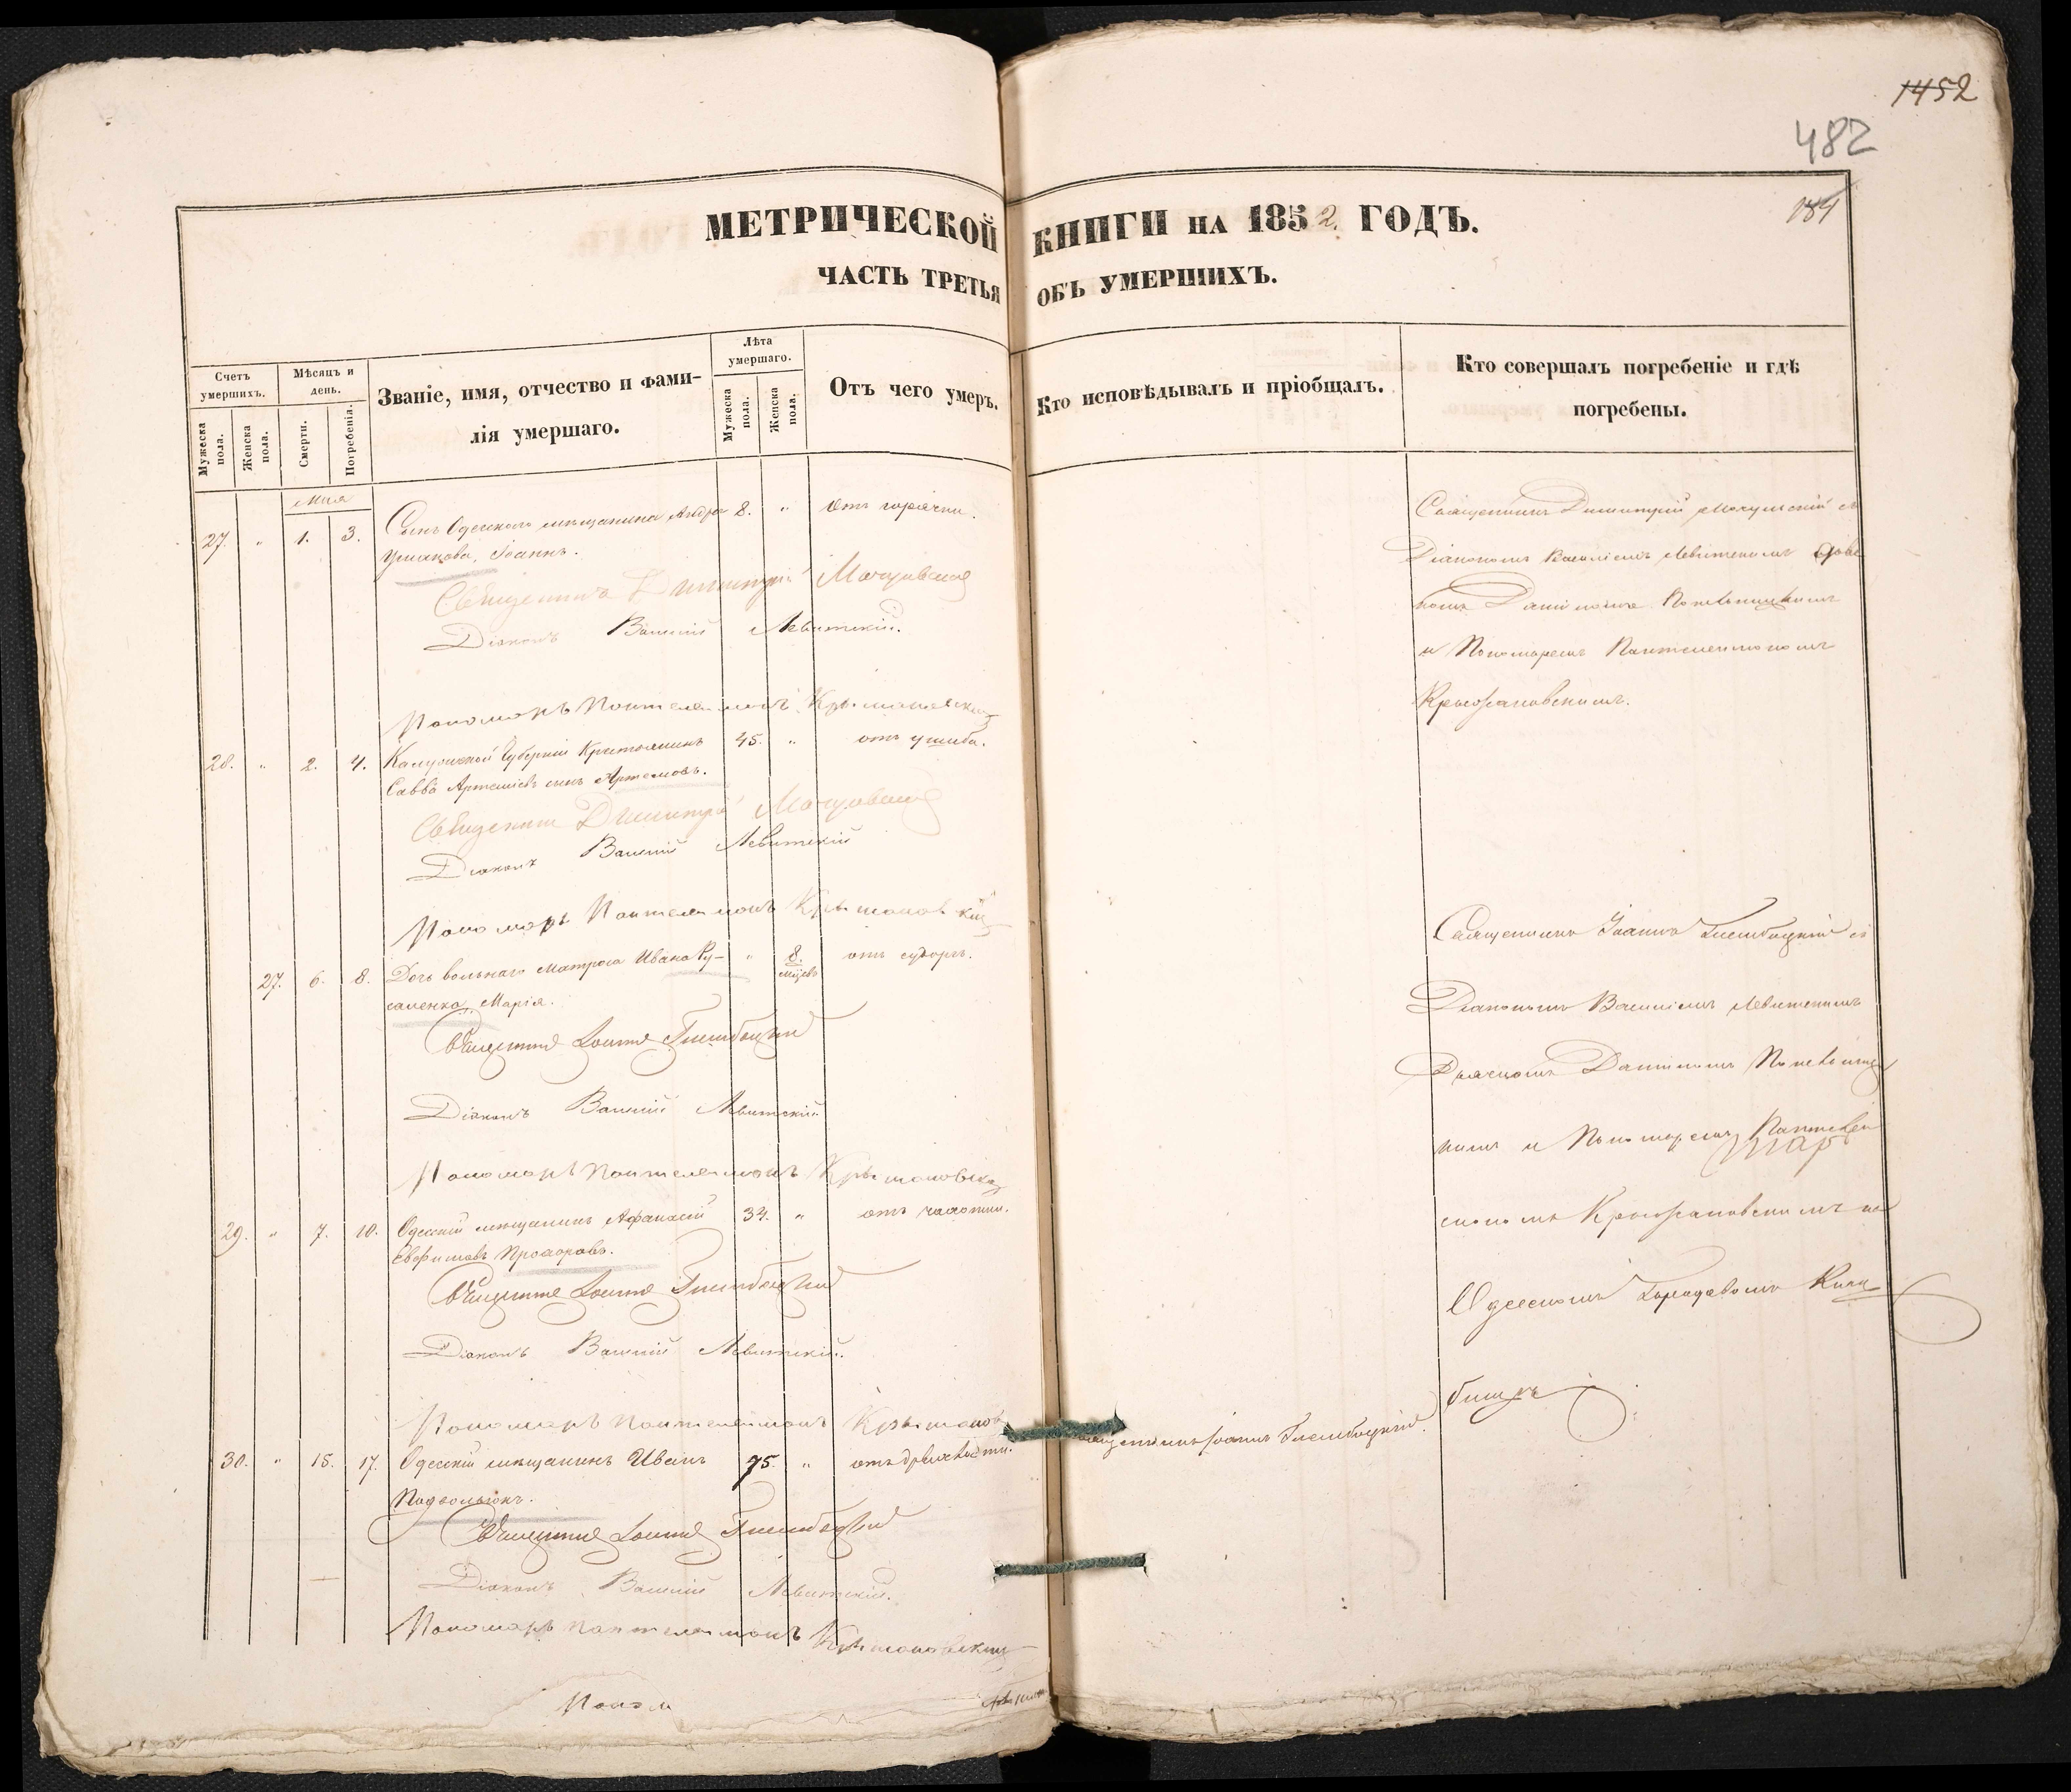 1452
482
184
МЕТРИЧЕСКОЙ КНИГИ НА 1852. ГОДЪ.
ЧАСТЬ ТРЕТЬЯ ОБЪ УМЕРШИХЪ.
Счетъ умершихъ.
Мужеска пола.
Женска пола.
Мѣсяцъ и день.
Смерти.
Погребенія.
Званіе, имя, отчество и фами-
лія умершаго.
Лѣта умершаго.
Мужеска пола.
Женска пола.
Отъ чего умеръ.
Кто исповѣдывалъ и пріобщалъ.
Кто совершалъ погребеніе и гдѣ
погребены.
Мая
27. " 1. 3. Сынъ Одесскаго мѣщанина Андрея 8. " Отъ горячки.
Ушакова, Іоаннъ.
Священникъ Димитрій
Діаконъ Василій Левитскій.
Пономарь Пантелеимонъ Крыжановскій
28. " 2. 4. Калужской Губерніи Крестьянинъ 45. " отъ ушиба.
Савва Артеміевъ сынъ Артемовъ.
Священникъ Димитрій
Діаконъ Василій Левитскій
Пономарь Пантелеимонъ Крыжановскій
27. 6. 8. Дочь вольнаго матроса Ивана Ру- " 8. мѣсяцъ отъ судоргъ.
саленка, Марія.
Священникъ Іоаннъ
Діаконъ Василій Левитскій
Пономарь Пантелеимонъ Крыжановскій
29. " 7. 10. Одесскій мѣщанинъ Афанасій 34. " отъ чахотки.
Евфимовъ Прохоровъ.
Священникъ Іоаннъ
Діаконъ Василій Левитскій.
Пономарь Пантелеимонъ Крыжанов
30. " 15. 17. Одесскій мѣщанинъ Иванъ 75. " отъ дряхлости.
Подвольюкъ.
Священникъ Іоаннъ
Діаконъ Василій Левитскій.
Пономарь Пантелеимонъ Крыжановскій
Поном
Священникъ Димитрій
Діакономъ Василіемъ Левитскимъ
Даніиломъ
и Пономаремъ Пантелеимономъ
Крыжановскимъ.
Священникъ Іоаннъ
Діакономъ Василіемъ Левитскимъ
Дьячкомъ Даніиломъ
кимъ и Пономаремъ
Крыжановскимъ на
Одесскомъ Городовомъ Клад
бищѣ
Священникъ Іоаннъ